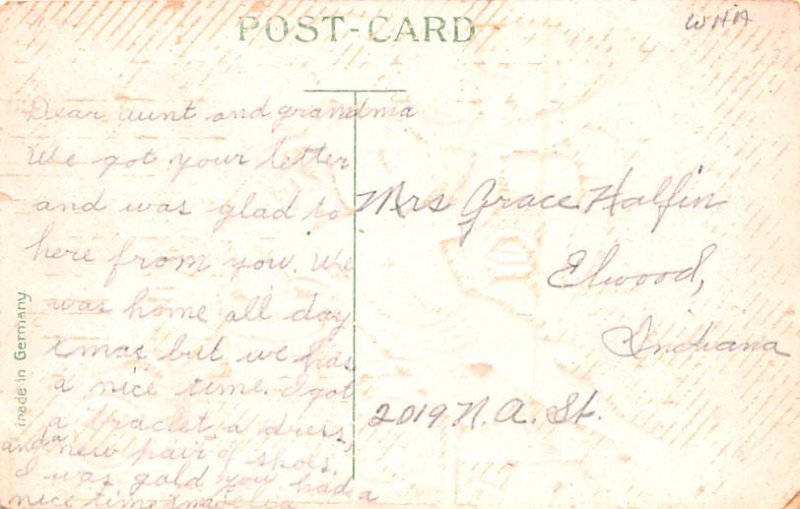 POST-CARD
WHA
Dear aunt and grandma
We got your letter
and was glad to
here from you. We
was home all day
xmas but we had
a nice time. I got
a braclet, a dress,
and a new pair of shols.
I was gald you had a
nice time xmas
Mrs Grace Halfin
Elwood,
Indiana
2019 N. A. St.
made in Germany